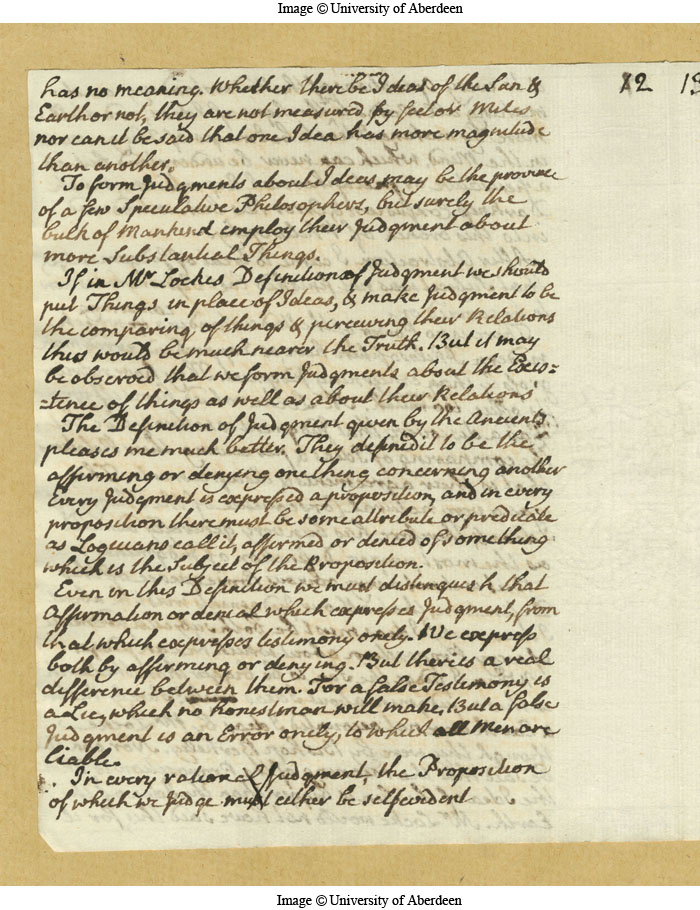 Image © University of Aberdeen
12
has no meaning. Whether there be Ideas of the Sun &
Earth or not, they are not measured by feet or Miles
nor can it be said that one Idea has more magnitude
than another.
To form Judgments about Ideas may be the province
of a few Speculative Philosophers, but surely the
bulk of Mankind employ their Judgment about
more Substantial Things.
If in Mr Lockes Definition of Judgment we should
put Things in place of Ideas, & make Judgment to be
the comparing of things & perceiving their Relations
this would be much nearer the Truth. But it may
be observed that we form Judgments about the Exis=
=tence of things as well as about their Relations
The Definition of Judgment given by the Ancients
pleases me much better. They defined it to be the
affirming or denying one thing concerning another
Every Judgment is expressed a proposition, and in every
proposition there must be some attribute or predicate
as Logicians call it, affirmed or denied of something
which is the Subject of the Proposition.
Even in this Definition we must distinguish that
Affirmation or denial which expresses Judgment, from
that which expresses testimony onely. We express
both by affirming or denying. But there is a real
difference between them. For a false Testimony is
a Lie, which no honest man will make. But a false
Judgment is an Error onely, to which all Men are
liable.
In every rational Judgment, the Proposition
of which we Judge must either be selfevident
Image © University of Aberdeen